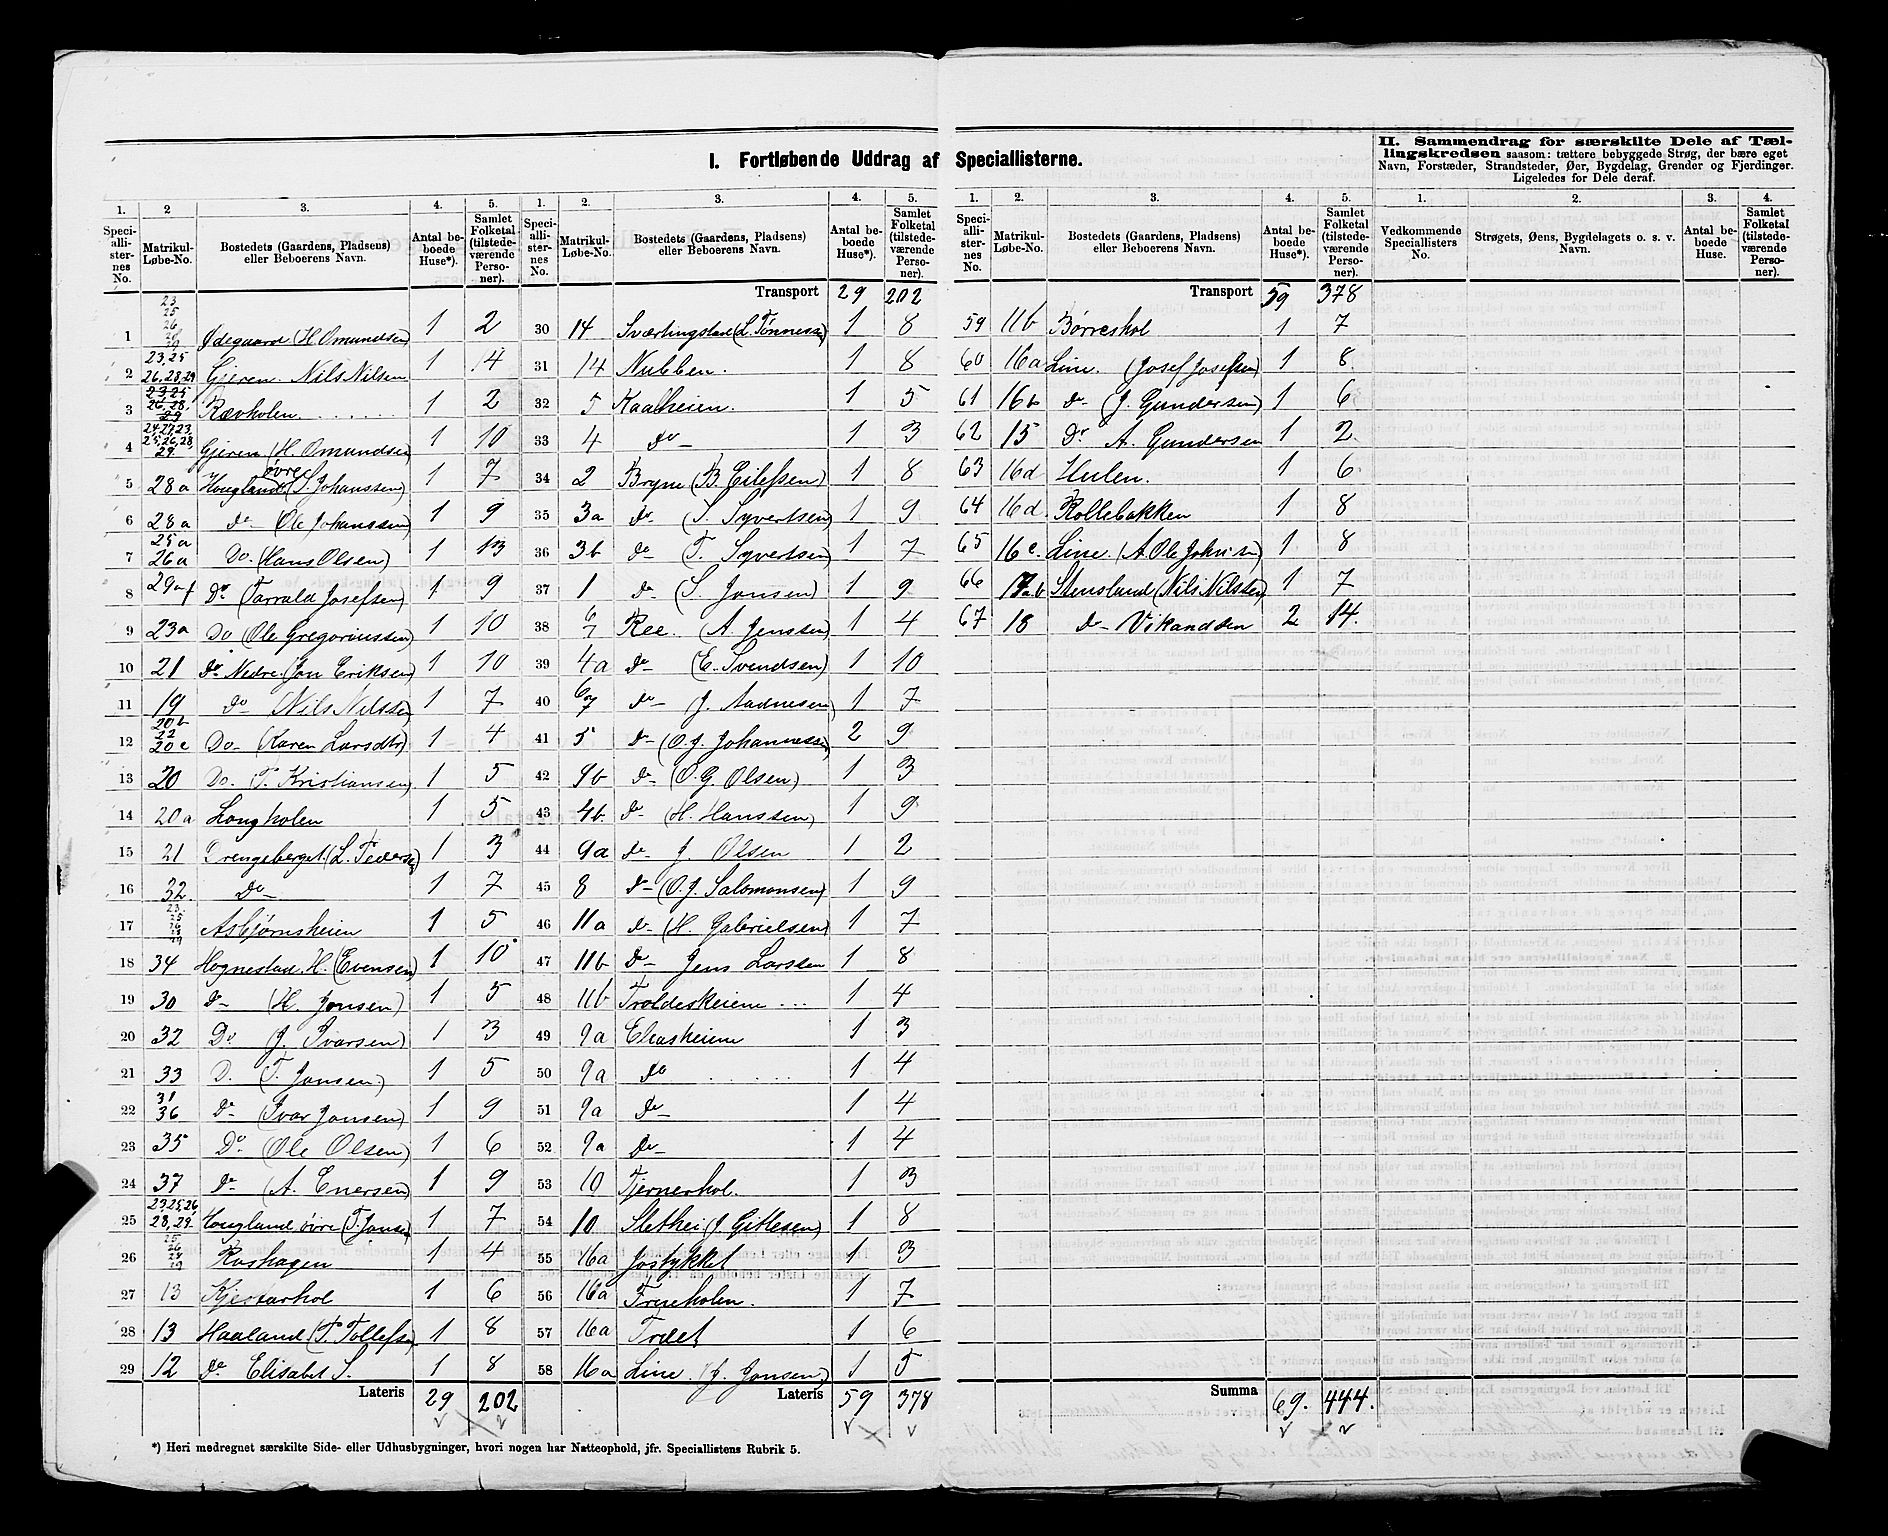 I. Fortløbende Uddrag af Speciallisterne.
II. Sammendrag for særskilte Dele af Tæl-
lingskredsen saasom: tættere bebyggede Strøg, der bære eget
Navn, Forstæder, Strandsteder, Øer, Bygdelag, Grender og Fjerdinger.
Ligeledes for Dele deraf.
1. 2 3. 4. 5. 1. 2. 3. 4. 5. 1. 2. 3. 4. 5. 1. 2. 3. 4.
Speciallisternes No. Matrikul-Løbe-No. Bostedets (Gaardens, Pladsens) eller Beboerens Navn. Antal beboede Huse*). Samlet Folketal (tilstedeværende Personer).
Speciallisternes No. Matrikul-Løbe-No. Bostedets (Gaardens, Pladsens) eller Beboerens Navn. Antal beboede Huse*). Samlet Folketal (tilstedeværende Personer).
Speciallisternes No. Matrikul-Løbe-No. Bostedets (Gaardens, Pladsens) eller Beboerens Navn. Antal beboede Huse*). Samlet Folketal (tilstedeværende Personer).
Vedkommende Speciallisters No. Strøgets, Øens, Bygdelagets o. s. v. Navn. Antal beboede Huse. Samlet Folketal (tilstedeværende Personer).
1 23 25 26 28 29 Ødegaard (H. Omundsen) 1 2
2 23,25 26,28,29 Gjeren. Nils Nilsen 1 4
3 23,25 26,28, 29 Rævholen 1 2
4 24,27,23, 25,26,28, 29 Gjeren (H. Omundsen) 1 10
5 28a Hougland øvre (S. Johanssen) 1 7
6 28a do (Ole Johanssen) 1 9
7 25a 26a Do (Hans Olsen) 1 13
8 29af Do (Torrald Josefsen) 1 9
9 23a Do (Ole Gregoriussen) 1 10
10 21 Do Nedre (Jon Eriksen) 1 10
11 19 Do Nils Nilssen 1 7
12 20b 22 20c Do (Karen Larsdtr) 1 4
13 20 Do (T. Kristiansen) 1 5
14 20a Longholen 1 5
15 21 Drengeberget (L. Pedersen) 1 3
16 32. Do 1 7
17 23. 25 26 28 29 Asbjørnsheien 1 5
18 34 Hognestad. H. (Evensen) 1 10
19 30 Do (H. Jonsen) 1 5
20 32 Do (J. Ivarsen) 1 3
21 33 D. (T. Jonsen) 1 5
22 31 36 Do (Ivar Jonsen) 1 9
23 35 Do (Ole Olsen) 1 6
24 37 Do (A. Enersen) 1 9
25 23,25,26, 28,29. Hougland øvre (T. Jonsen) 1 7
26 25 26 28 29 Roshagen 1 4
27 13 Kjestarhol 1 6
28 13 Haaland (T. Tollefsen) 1 8
29 12 do Elisabet S. 1 8
Lateris 29 202
Transport 29 202
30 14 Sværtingstad (L. Tønnessen) 1 8
31 14 Nubben. 1 8
32 5 Kaalheien. 1 5
33 4 do 1 3
34 2 Bryne (B. Eilefsen) 1 8
35 3a do (S. Syvertsen) 1 9
36 3b do (T. Syvertsen) 1 7
37 1 do (S. Jonsen) 1 9
38 6 7 Ree. (A. Jenssen) 1 4
39 4a do (E. Svendsen) 1 10
40 6 7 do J. Aadnesen) 1 7
41 5 do (O. J. Johannessen) 2 9
42 9b do (O. G. Olsen) 1 3
43 4b. do (H. Hanssen) 1 9
44 9a do J. Olsen 1 2
45 8 do (O. J. Salomonsen) 1 9
46 11a do (H. Gabrielsen) 1 7
47 11b Do Jens Larssen 1 8
48 11b Troldesheiene 1 4
49 9a Eliasheiene 1 3
50 9a do 1 4
51 9a do 1 4
52 9a do 1 4
53 10 Tjernerhol. 1 3
54 10 Slethei (J. Gitlesen) 1 8
55 16a Jostykket 1 3
56 16a Trueholen. 1 7
57 16a Trælet 1 6
58 16a Line. (J. Jonsen) 1 5
Lateris 59 378
Transport 59 378
59 11b Børreshol 1 7
60 16a Line. (Josef Josefsen) 1 8
61 16b do (J. Gundersen) 1 6
62 15 Do A. Gundersen 1 2
63 16d Hulen. 1 6
64 16d. Rollebakken 1 8
65 16c. Line. (A. Ole Johnsen) 1 8
66 17ab Stensland (Nils Nilssen) 1 7
67 18 do Vikandden 2 14.
Summa 69. 444.
*) Heri medregnet særskilte Side- eller Udhusbygninger, hvori nogen har Natteophold, jfr. Speciallistens Rubrik 5.